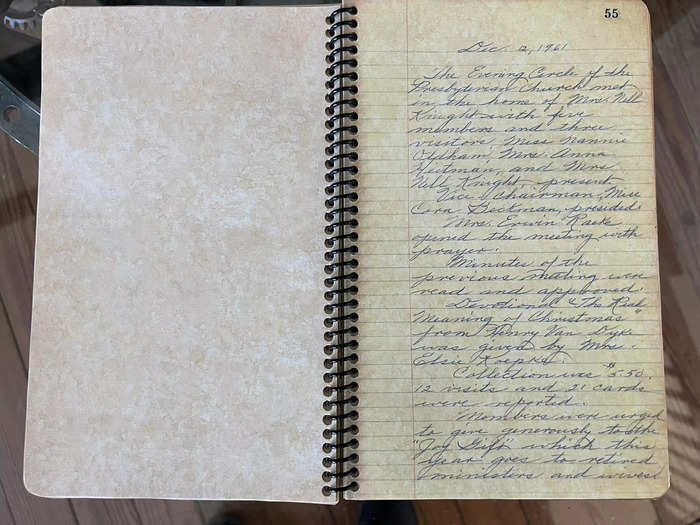 55
Dec. 12, 1961
The Evening Circle of the
Presbyterian Church met
in the home of Mrs. Nell
Knight with five
members and three
visitors, Miss Nannie
Oldham, Mrs. Anna
Heitman, and Mrs.
Nell Knight, present.
Vice Chairman, Miss
Cora Beckman, presided.
Mrs. Erwin Raske
opened the meeting with
prayer.
Minutes of the
previous meeting were
read and approved.
Devotional "The Real
Meaning of Christmas"
from Henry Van Dyke
was given by Mrs.
Elsie Koepke.
Collection was $5.50.
12 visits and 21 cards
were reported.
Members were urged
to give generously to the
"Joy Gift" which this
year goes to retired
ministers and wives